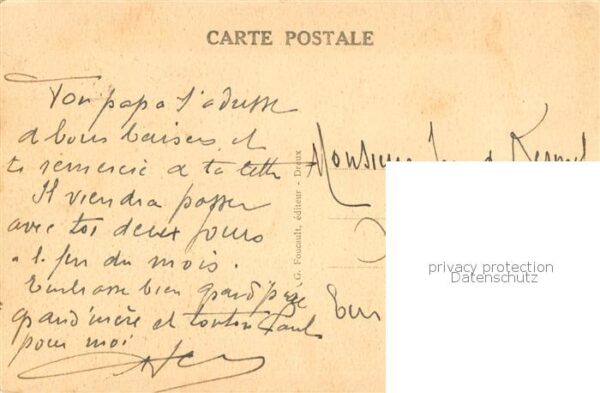 CARTE POSTALE
Ton papa t'adresse
de bons baisers et
te remercie de ta lettre
Il viendra passer
avec toi deux jours
à la fin du mois.
Embrasse bien grand père
grand'mère et tonton Paul
pour moi
Monsieur
G. Foucault, éditeur - Dreux
privacy protection
Datenschutz